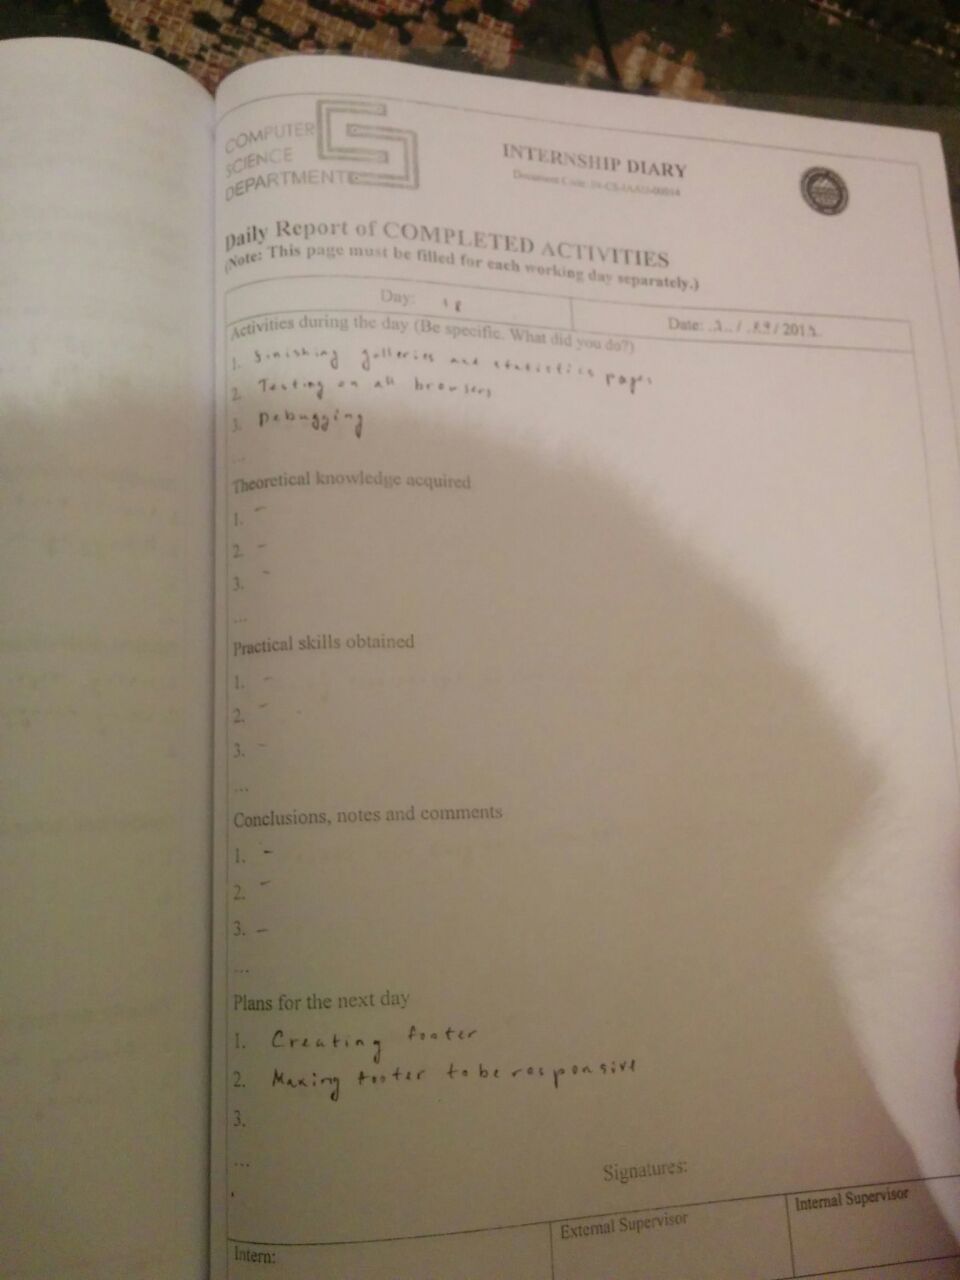 COMPUTER
SCIENCE
DEPARTMENT
INTERNSHIP DIARY
Document Code:
Daily Report of COMPLETED ACTIVITIES
(Note: This page must be filled for each working day separately.)
Day: 18
Date: / / 201
Activities during the day (Be specific. What did you do?)
1. Finishing galleries and statistics pages
2. Testing on all browsers
3. Debugging
...
Theoretical knowledge acquired
1. -
2. -
3. -
...
Practical skills obtained
1. -
2. -
3. -
...
Conclusions, notes and comments
1. -
2. -
3. -
...
Plans for the next day
1. Creating footer
2. Making footer to be responsive
3.
...
Signatures:
Intern:
External Supervisor
Internal Supervisor